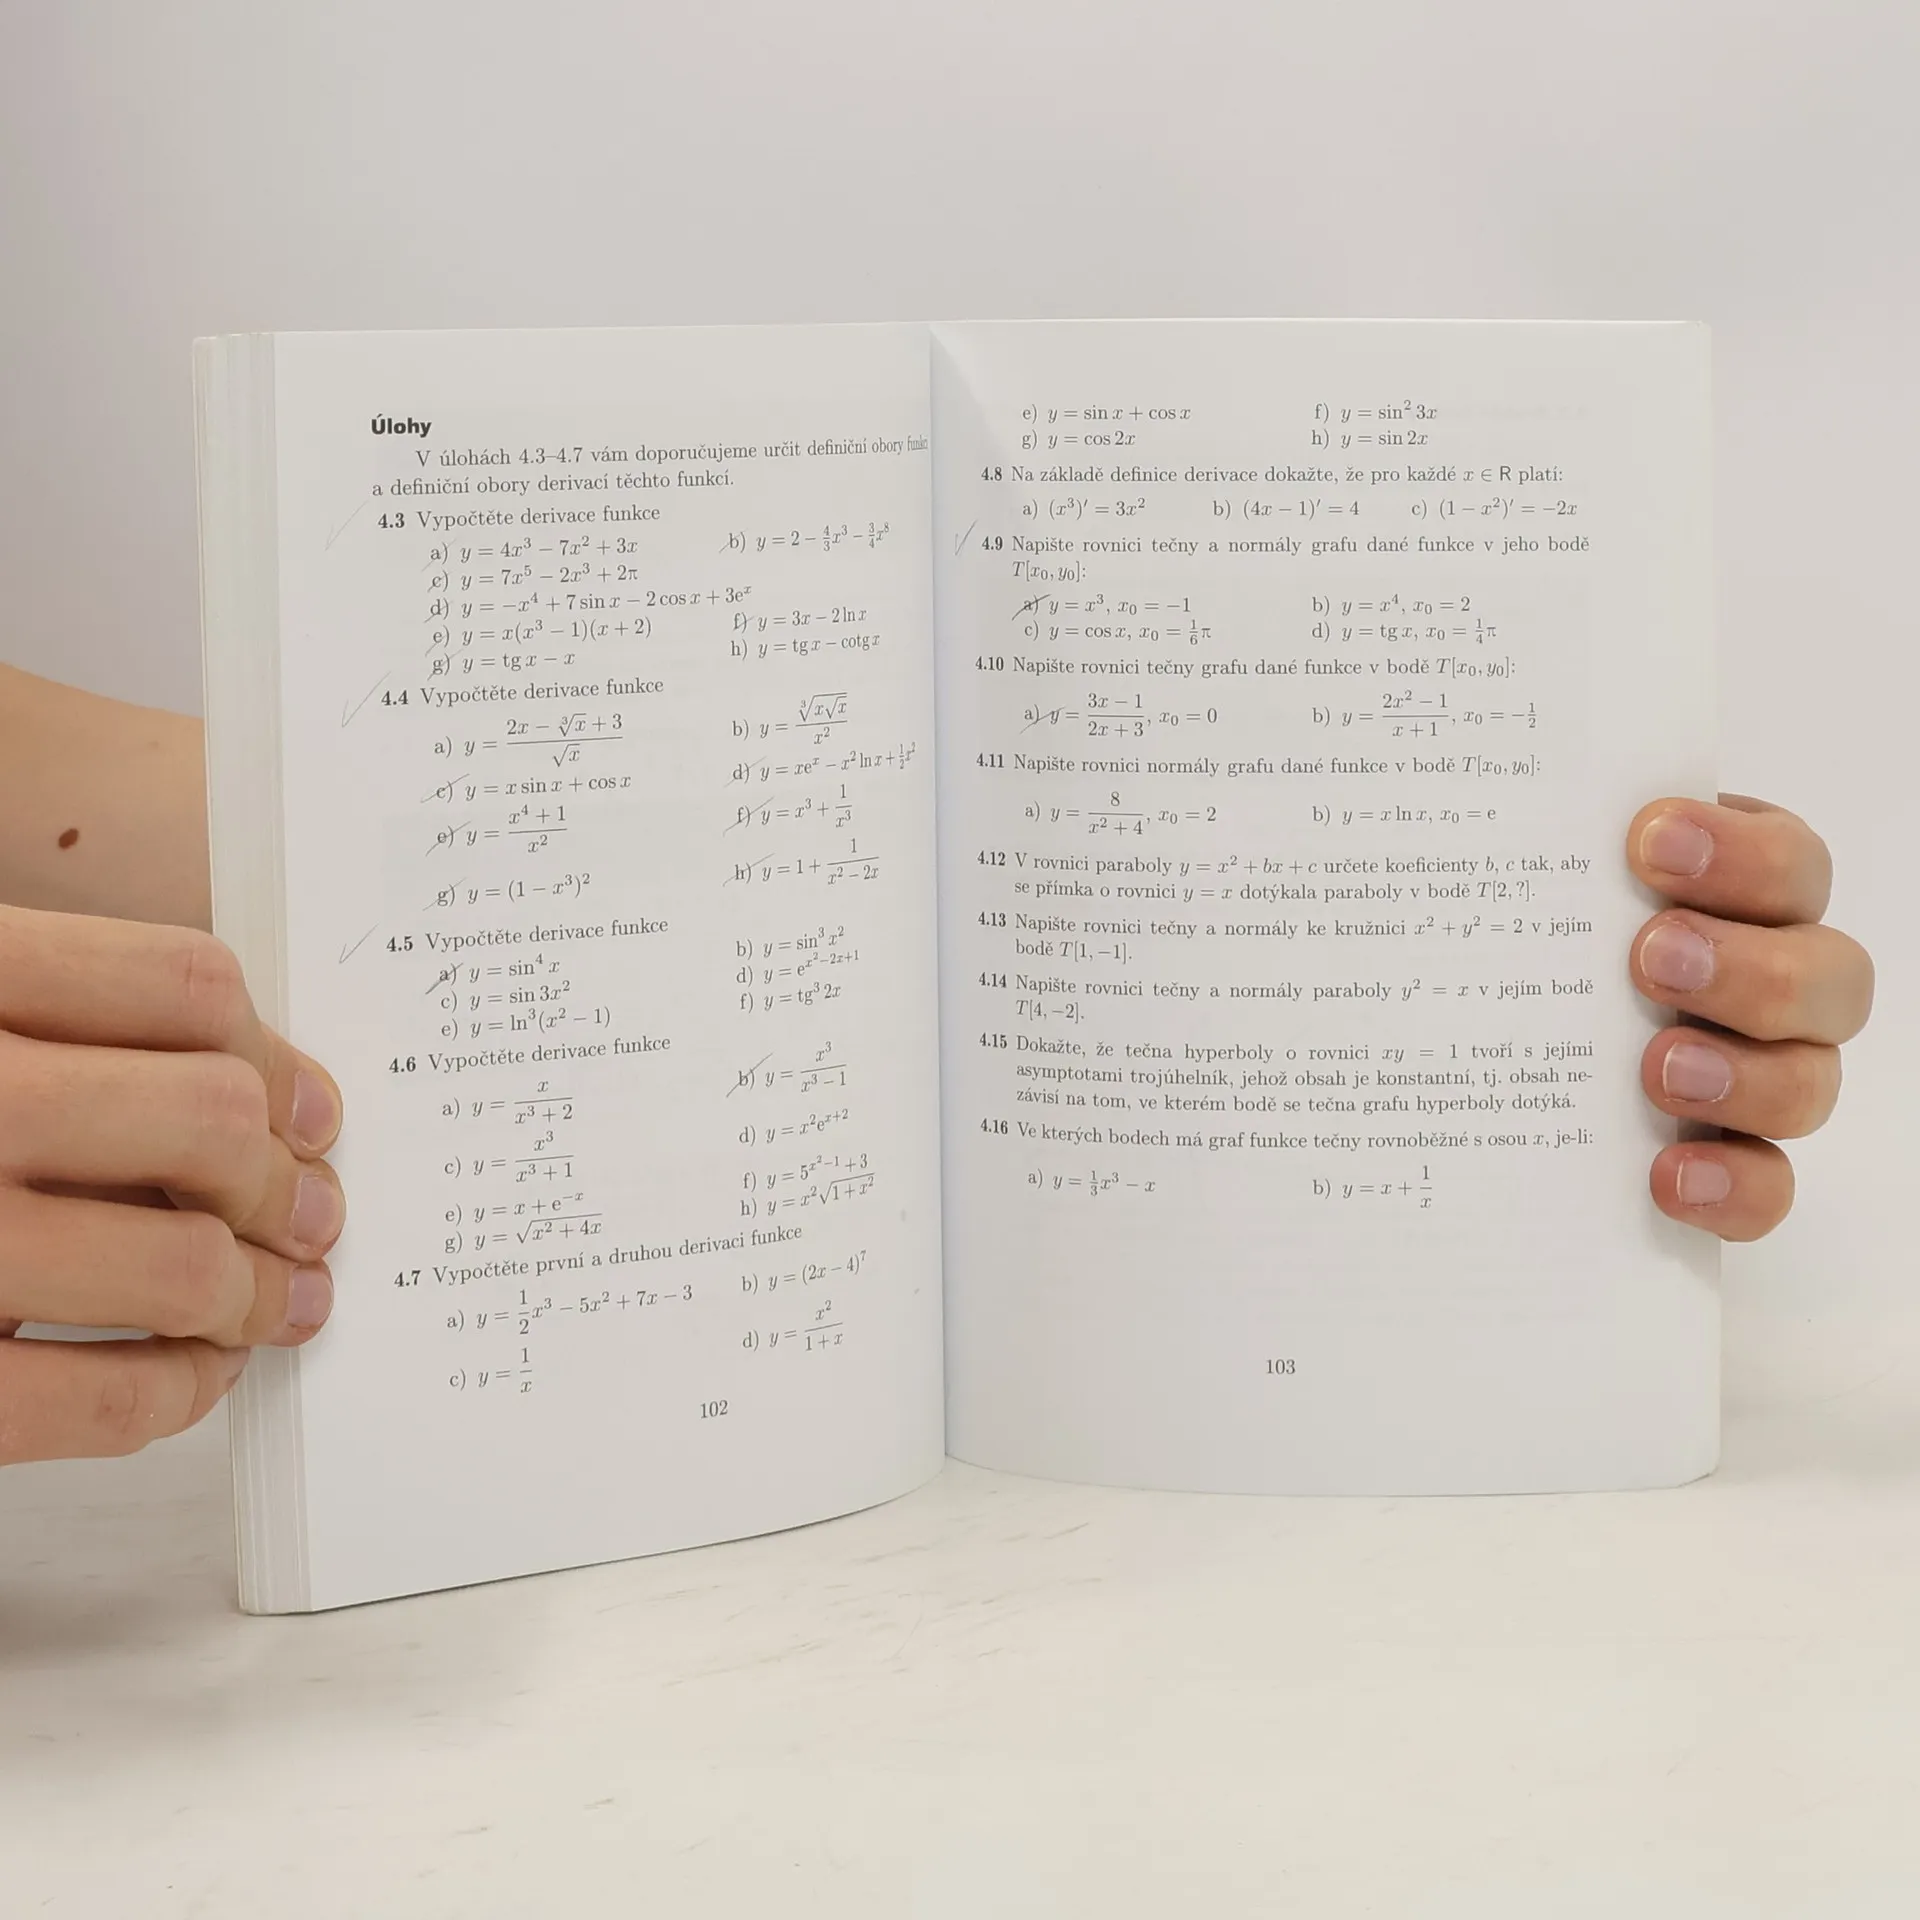 Úlohy
V úlohách 4.3–4.7 vám doporučujeme určit definiční obory funkcí
a definiční obory derivací těchto funkcí.
4.3 Vypočtěte derivace funkce
a) y = 4x³ − 7x² + 3x b) y = 2 − 4/3x³ − 3/4x⁸
c) y = 7x⁵ − 2x³ + 2π
d) y = −x⁴ + 7 sin x − 2 cos x + 3eˣ
e) y = x(x³ − 1)(x + 2) f) y = 3x − 2 ln x
g) y = tg x − x h) y = tg x − cotg x
4.4 Vypočtěte derivace funkce
a) y = (2x − ∛x + 3)/√x b) y = ∛(x√x)/x²
c) y = x sin x + cos x d) y = xeˣ − x² ln x + 1/2x²
e) y = (x⁴ + 1)/x² f) y = x³ + 1/x³
g) y = (1 − x³)² h) y = 1 + 1/(x² − 2x)
4.5 Vypočtěte derivace funkce
a) y = sin⁴ x b) y = sin³ x²
c) y = sin 3x² d) y = e^(x²−2x+1)
e) y = ln³(x² − 1) f) y = tg³ 2x
4.6 Vypočtěte derivace funkce
a) y = x/(x³ + 2) b) y = x³/(x³ − 1)
c) y = x³/(x³ + 1) d) y = x²e^(x+2)
e) y = x + e^(−x) f) y = 5^(x²−1) + 3
g) y = √(x² + 4x) h) y = x²√(1 + x²)
4.7 Vypočtěte první a druhou derivaci funkce
a) y = 1/2x³ − 5x² + 7x − 3 b) y = (2x − 4)⁷
c) y = 1/x d) y = x²/(1 + x)
102
e) y = sin x + cos x f) y = sin² 3x
g) y = cos 2x h) y = sin 2x
4.8 Na základě definice derivace dokažte, že pro každé x ∈ R platí:
a) (x³)′ = 3x² b) (4x − 1)′ = 4 c) (1 − x²)′ = −2x
4.9 Napište rovnici tečny a normály grafu dané funkce v jeho bodě
T[x₀, y₀]:
a) y = x³, x₀ = −1 b) y = x⁴, x₀ = 2
c) y = cos x, x₀ = 1/6π d) y = tg x, x₀ = 1/4π
4.10 Napište rovnici tečny grafu dané funkce v bodě T[x₀, y₀]:
a) y = (3x − 1)/(2x + 3), x₀ = 0 b) y = (2x² − 1)/(x + 1), x₀ = −1/2
4.11 Napište rovnici normály grafu dané funkce v bodě T[x₀, y₀]:
a) y = 8/(x² + 4), x₀ = 2 b) y = x ln x, x₀ = e
4.12 V rovnici paraboly y = x² + bx + c určete koeficienty b, c tak, aby
se přímka o rovnici y = x dotýkala paraboly v bodě T[2, ?].
4.13 Napište rovnici tečny a normály ke kružnici x² + y² = 2 v jejím
bodě T[1, −1].
4.14 Napište rovnici tečny a normály paraboly y² = x v jejím bodě
T[4, −2].
4.15 Dokažte, že tečna hyperboly o rovnici xy = 1 tvoří s jejími
asymptotami trojúhelník, jehož obsah je konstantní, tj. obsah ne-
závisí na tom, ve kterém bodě se tečna grafu hyperboly dotýká.
4.16 Ve kterých bodech má graf funkce tečny rovnoběžné s osou x, je-li:
a) y = 1/3x³ − x b) y = x + 1/x
103